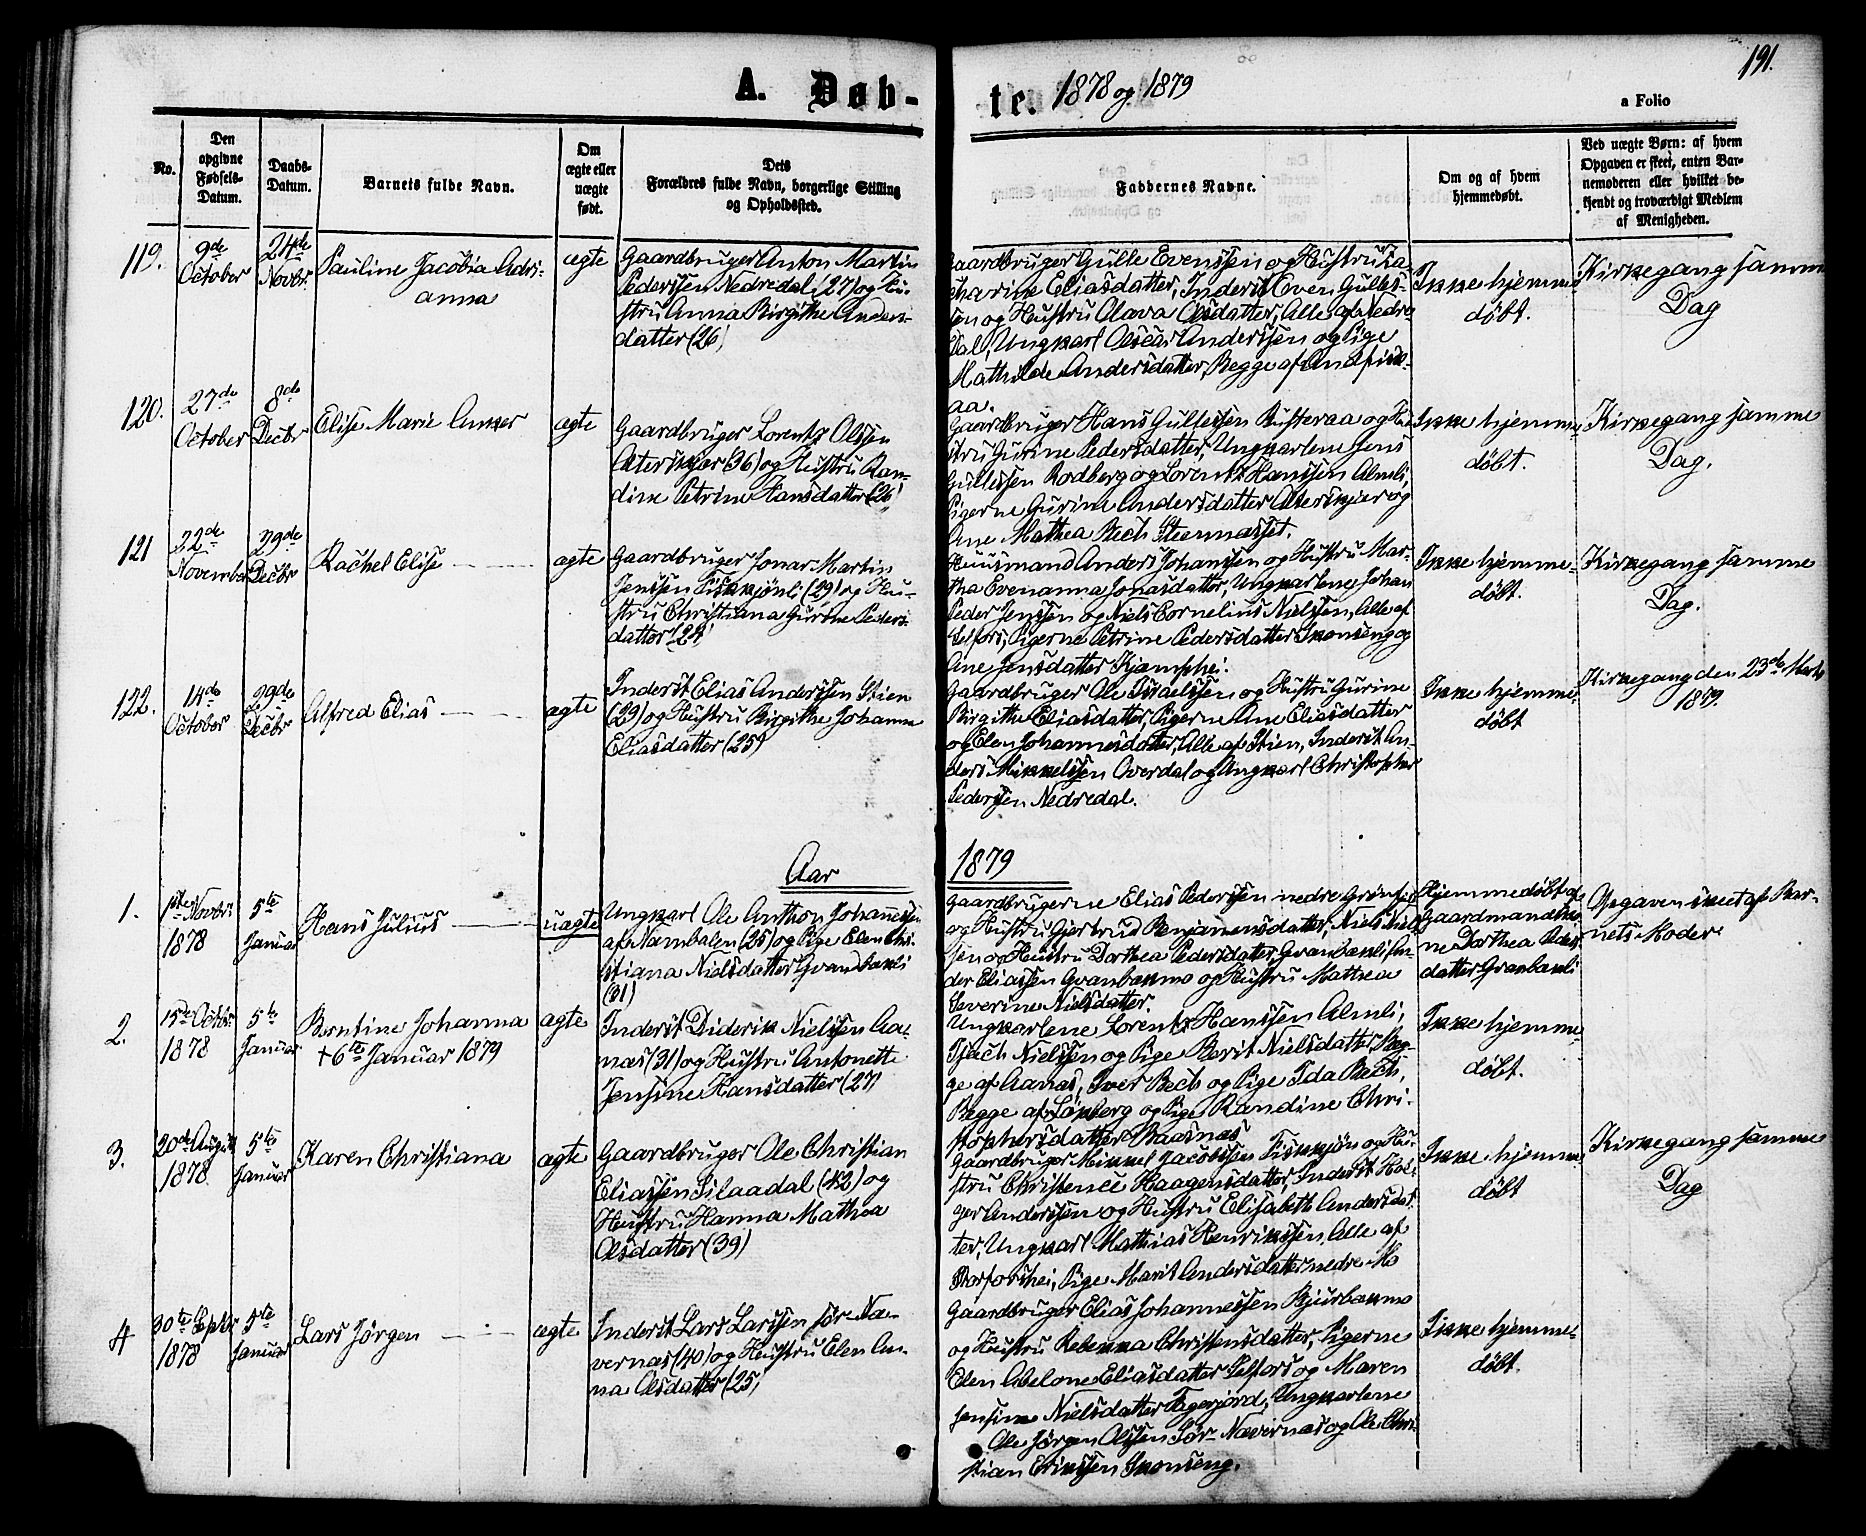 191.
A. Døb-
te. 1878 og 1879
a Folio
No.
Den
opgivne
Fødsels-
Datum.
Daabs-
Datum.
Barnets fulde Navn.
Om
ægte eller
uægte
født.
Dets
Forældres fulde Navn, borgerlige Stilling
og Opholdssted.
Faddernes Navne.
Om og af hvem
hjemmedøbt.
Ved uægte Børn: af hvem
Opgaven er skeet, enten Bar-
nemoderen eller hvilket be-
kjendt og troværdigt Medlem
af Menigheden.
119.
9de
October
24de
Novbr.
Pauline Jacobia Adri-
anna
ægte
Gaardbruger Anton Martin
Pederssen Nedredal (27) og Hu-
stru Anna Birgithe Anders-
datter (26)
Gaardbruger Gulle Evenssen og Hustru Za-
charine Eliasdatter, Inderst Even Gulles-
sen og Hustru Olava Olsdatter, Alle af Nedre-
dal, Ungkarl Oscar Anderssen og Pige
Mathilde Andersdatter, Begge af Andfisk-
aa.
Ikke hjemme-
døbt.
Kirkegang samme
Dag
120.
27de
October
8de
Decbr
Elise Marie Anker
ægte
Gaardbruger Lorents Olssen
Alterskjær (36) og Hustru Ran-
dine Petrine Hansdatter (26)
Gaardbruger Hans Gullessen Rufteraa og Hu-
stru Gurine Pedersdatter, Ungkarlene Jens
Gullessen Rodberg og Lorents Hanssen Almli,
Pigerne Gurine Andersdatter Alterskjær og
Ane Mathea Bech Steennæsset.
Ikke hjemme-
døbt.
Kirkegang samme
Dag.
121
22de
November
29de
Decbr
Rachel Elise
ægte
Gaardbruger Jonas Martin
Jenssen Fiskkjønli (29) og Hu-
stru Christiana Gurine Peders-
datter (24)
Huusmand Anders Johanssen og Hustru Mar-
tha Evenanna Jonasdatter, Ungkarlene Johan
Peder Jenssen og Niels Cornelius Nielssen, Alle af
Selfors, Pigerne Petrine Pedersdatter Skonseng og
Ane Jensdatter Kjæmphei.
Ikke hjemme-
døbt.
Kirkegang samme
Dag.
122.
14de
October
29de
Decbr
Alfred Elias
ægte
Inderst Elias Anderssen Stien
(29) og Hustru Birgithe Johanna
Eliasdatter (25)
Gaardbruger Ole Israelssen og Hustru Gurine
Birgithe Eliasdatter, Pigerne Ane Eliasdatter
og Elen Johannesdatter, Alle af Stien, Inderst An-
ders Mikkelssen Overdal og Ungkarl Christopher
Pederssen Nedredal.
Ikke hjemme-
døbt
Kirkegang den 23de Marts
1879.
Aar 1879
1.
1ste Novbr
1878
5te
Januar
Hans Julius
uægte
Ungkarl Ole Anthon Johannessen
af Nambalen (25) og Pige Elen Chri-
stiana Nielsdatter Granbækli
(31)
Gaardbrugerne Elias Pederssen nedre Grønfjeld
og Hustru Gjertrud Benjaminsdatter, Niels Niels-
sen og Hustru Dorthea Pedersdatter Granbækli An-
der Eliassen Granbækmo og Hustru Mathea
Severine Nielsdatter.
Hjemmedøbt af
Gaardmandsko-
ne Dorthea Peders-
datter Granbækli
Opgaven skeet af Bar-
nets Moder
2.
15de Octbr
1878
5te
Januar
Berntine Johanna
+ 6te Januar 1879
ægte
Inderst Diderik Nielssen Aa-
næs (31) og Hustru Antonette
Jensine Hansdatter (27)
Ungkarlene Lorents Hanssen Almli,
Isach Nielssen og Pige Berit Nielsdatter, Beg-
ge af Aanæs, Iver Bech og Pige Ida Bech,
Begge af Lønberg og Pige Randine Chri-
stophersdatter Baasnæs
Ikke hjemme-
døbt.
3.
20de August
1878
5te
Januar
Karen Christiana
ægte
Gaardbruger Ole Christian
Eliassen Silaadal (42) og
Hustru Hanna Mathea
Olsdatter (39)
Gaardbruger Mikkel Jacobssen Fiskkjøn og Hu-
stru Christence Haagensdatter, Inderst Hol-
ger Anderssen og Hustru Elisabeth Andersdat-
ter, Ungkarl Mathias Henrikssen, Alle af
Storforshei, Pige Marit Andersdatter nedre Mo
Ikke hjemme-
døbt
Kirkegang samme
Dag
4
30te Septbr
1878
5te
Januar
Lars Jørgen
ægte
Inderst Lars Larssen sør-Næ-
vernæs (40) og Hustru Elen An-
na Olsdatter (25)
Gaardbruger Elias Johannessen Bjurbækmo
og Hustru Rebekka Christensdatter, Pigerne
Elen Abelone Eliasdatter Selfors og Maren
Jensine Nielsdatter Fagerjord, Ungkarlene
Ole Jørgen Olssen Sør-Nævernæs og Ole Chri-
stian Erikssen Skonseng.
Ikke hjemme-
døbt.